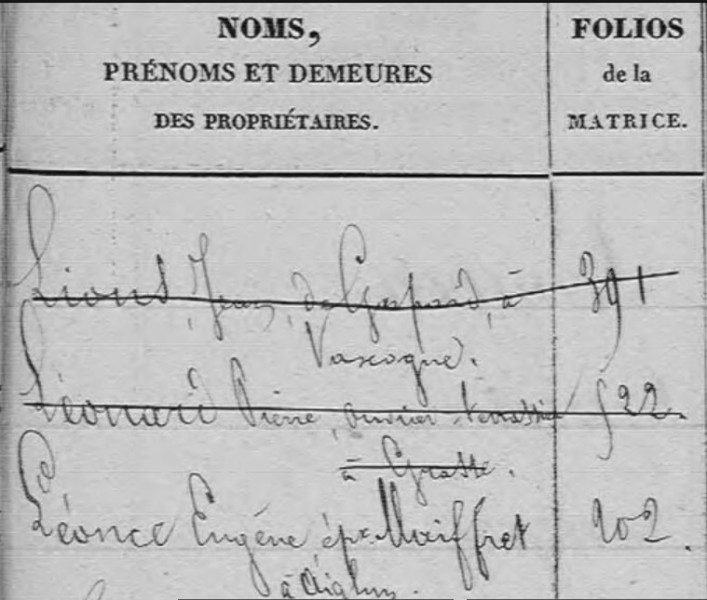 NOMS,
FOLIOS
PRÉNOMS ET DEMEURES
de la
DES PROPRIÉTAIRES.
MATRICE.
Lions, Jean, de Gaspard, à 391
Vascogne.
Léonard Pierre, ouvrier terrassier 522.
à Grasse.
Léonce Eugéne, épx. Maiffret 202.
à Aiglun.